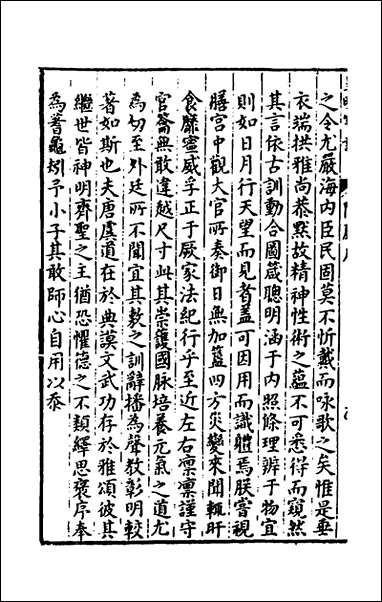 之令尤嚴海内臣民固莫不忻戴而咏歌之矣惟是垂
衣端拱雅尚恭默故精神性術之藴不可悉得而窺然
其言依古訓動合圖箴聰明涵于内照條理辨于物宜
則如日月行天望而見者蓋可因用而識體焉朕嘗視
膳宮中觀大官所奏御日無加籩四方災變來聞輒旰
食靡寧威孚正于厥家法紀行乎至近左右凛凛謹守
官籥無敢違越尺寸此其崇護國脉培養元氣之道尤
為切至外廷所不聞宜其敷之訓辭播為聲教彰明較
著如斯也夫唐虞道在於典謨文武功存於雅頌彼其
繼世皆神明齊聖之主猶恐懼德之不類繹思裒序奉
為蓍龜矧予小子其敢師心自用以忝